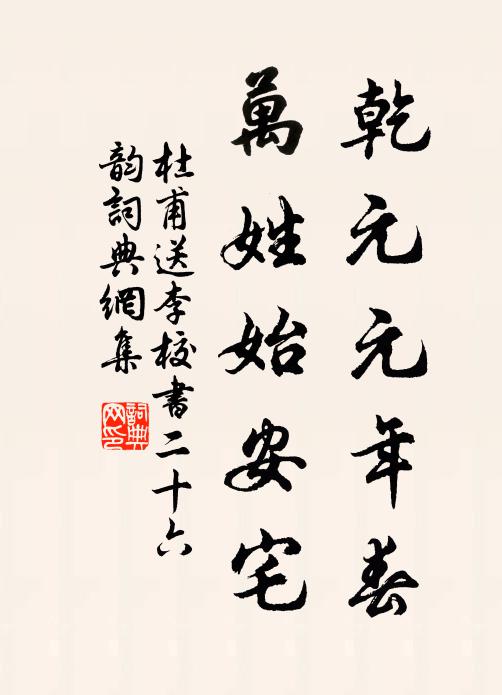 乾元元年春
萬姓始安宅
杜甫送李校書二十六
韵詞典網集
詞典
网印